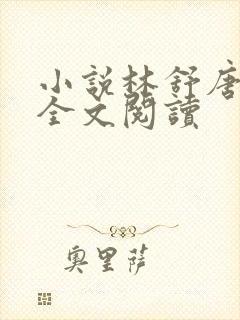 小說林舒唐
全文閱讀
奧里薩